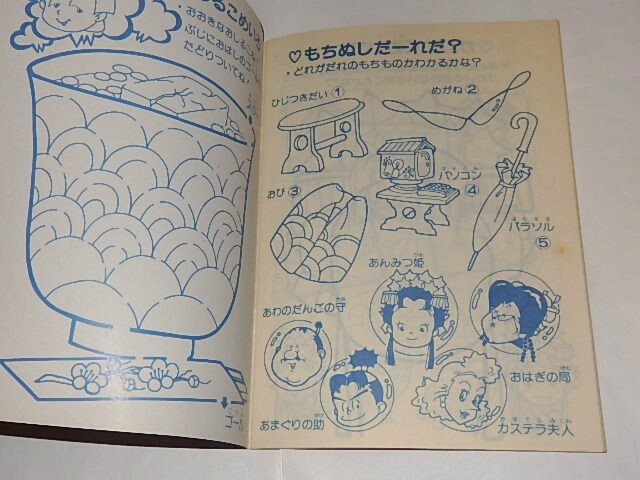 るこめいろ
・おおきなおしるこの
ぶじにおはしのゴールに
たどりついてね♪
ゴール
♡もちぬしだーれだ？
・どれがだれのもちものかわかるかな？
ひじつきだい①
めがね②
おび③
パソコン
④
パラソル
⑤
あんみつ姫
あわのだんごの守
おはぎの局
あまぐりの助
カステラ夫人